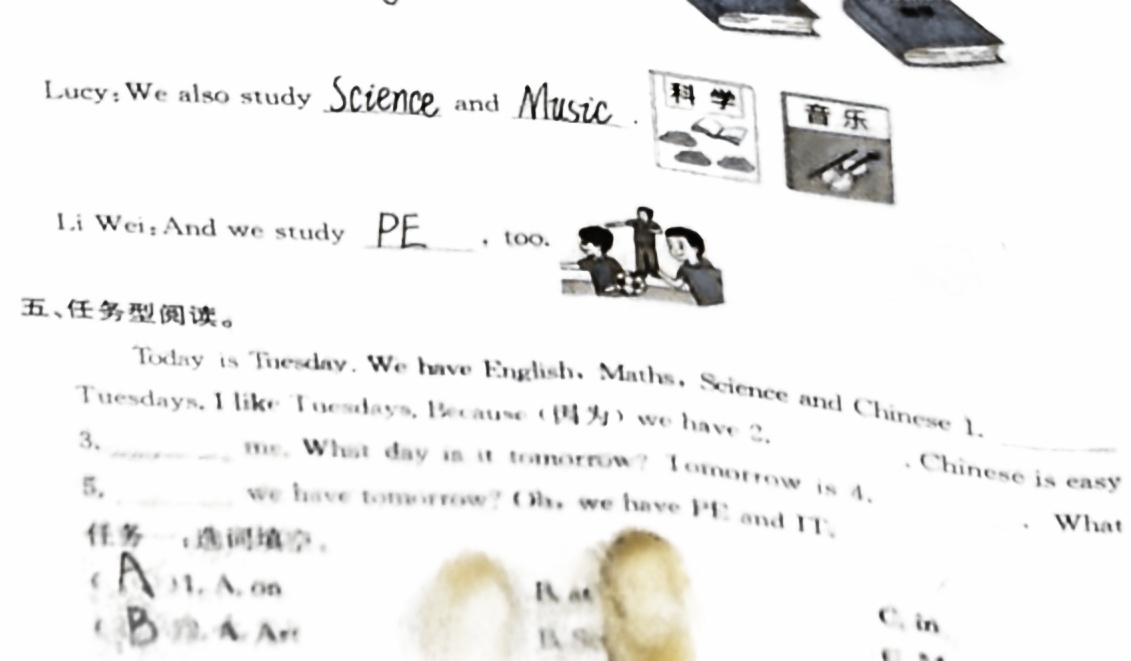 Lucy: We also study Science and Music.
科学
音乐
Li Wei: And we study PE, too.
五、任务型阅读。
Today is Tuesday. We have English, Maths, Science and Chinese 1.
Tuesdays. I like Tuesdays. Because (因为) we have 2. . Chinese is easy
3. me. What day is it tomorrow? Tomorrow is 4. . What
5. we have tomorrow? Oh, we have PE and IT.
任务一:选词填空。
( A ) 1. A. on B. at C. in
( B ) 2. A. Art B.